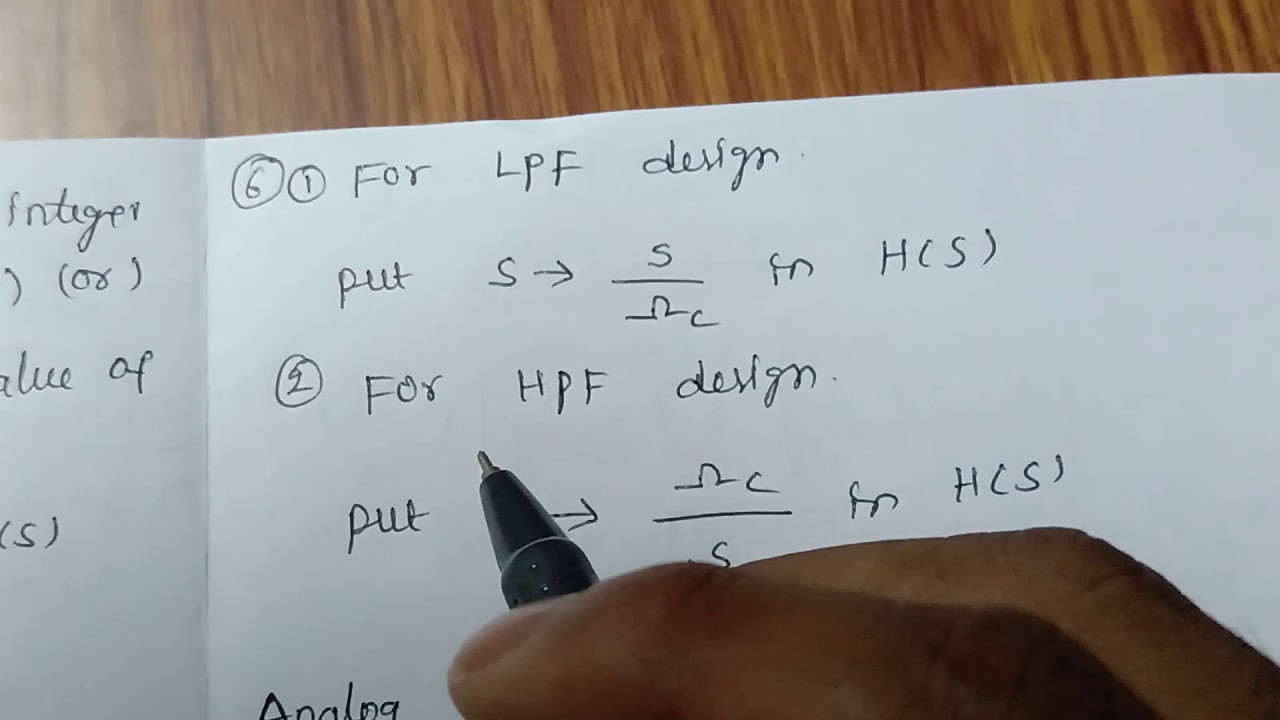 integer
) (or)
alue of
(s)
⑥ ① For LPF design.
put S → S/Ωc in H(S)
② For HPF design.
put → Ωc/S in H(S)
Analog